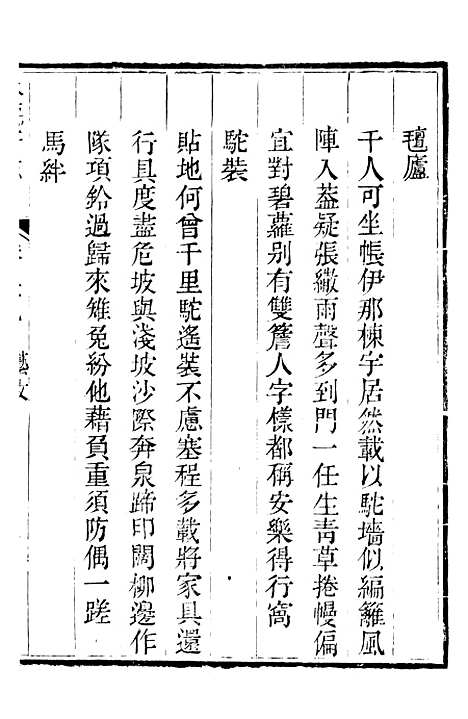 氊廬
千人可坐帳伊那棟宇居然載以駝墻似編籬風
陣入葢疑張繖雨聲多到門一任生青草捲幔偏
宜對碧蘿别有雙簷人字樣都稱安樂得行窩
駝裝
貼地何曾千里駝遙裝不慮塞程多載將家具還
行具度盡危坡與淺坡沙際奔泉蹄印闊柳邊作
隊項鈴過歸來雉兔紛他藉負重須防偶一蹉
馬絆
藝文